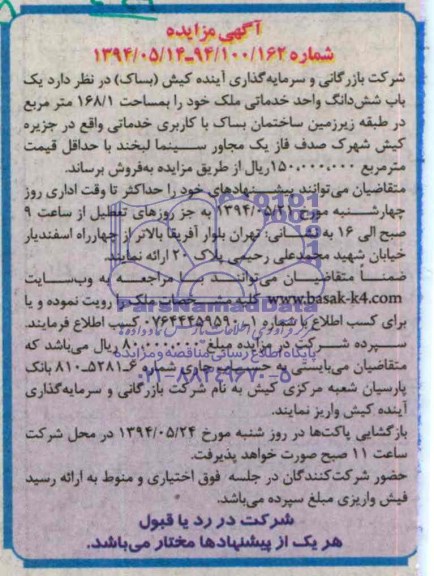 آگهی مزایده
شماره ۹۴/۱۰۰/۱۶۲-۱۳۹۴/۰۵/۱۴
شرکت بازرگانی و سرمایه‌گذاری آینده کیش (بساک) در نظر دارد یک
باب شش‌دانگ واحد خدماتی ملک خود را بمساحت ۱۶۸/۱ متر مربع
در طبقه زیرزمین ساختمان بساک با کاربری خدماتی واقع در جزیره
کیش شهرک صدف فاز یک مجاور سینما لبخند با حداقل قیمت
مترمربع ۱۵۰,۰۰۰,۰۰۰ریال از طریق مزایده به‌فروش برساند.
متقاضیان می‌توانند پیشنهادهای خود را حداکثر تا وقت اداری روز
چهارشنبه مورخ ۱۳۹۴/۰۵/ به جز روزهای تعطیل از ساعت ۹
صبح الی ۱۶ به نشانی: تهران بلوار آفریقا بالاتر از چهارراه اسفندیار
خیابان شهید محمدعلی رحیمی پلاک ۲۰ ارائه نمایند.
ضمناً متقاضیان می‌توانند با مراجعه به وب‌سایت
www.basak-k4.com کلیه مشخصات ملک را رویت نموده و یا
برای کسب اطلاع با شماره کسب اطلاع فرمایند.
سپرده شرکت در مزایده مبلغ ۸۰,۰۰۰,۰۰۰ ریال می‌باشد که
متقاضیان می‌بایستی به حساب جاری شماره ۶-۵۲۸۱-۸۱۰ بانک
پارسیان شعبه مرکزی کیش به نام شرکت بازرگانی و سرمایه‌گذاری
آینده کیش واریز نمایند.
بازگشایی پاکت‌ها در روز شنبه مورخ ۱۳۹۴/۰۵/۲۴ در محل شرکت
ساعت ۱۱ صبح صورت خواهد پذیرفت.
حضور شرکت‌کنندگان در جلسه فوق اختیاری و منوط به ارائه رسید
فیش واریزی مبلغ سپرده می‌باشد.
شرکت در رد یا قبول
هر یک از پیشنهادها مختار می‌باشد.
ParsNamadData
پایگاه اطلاع رسانی مناقصه و مزایده
۰۲۱-۸۸۳۴۹۶۷۰-۵